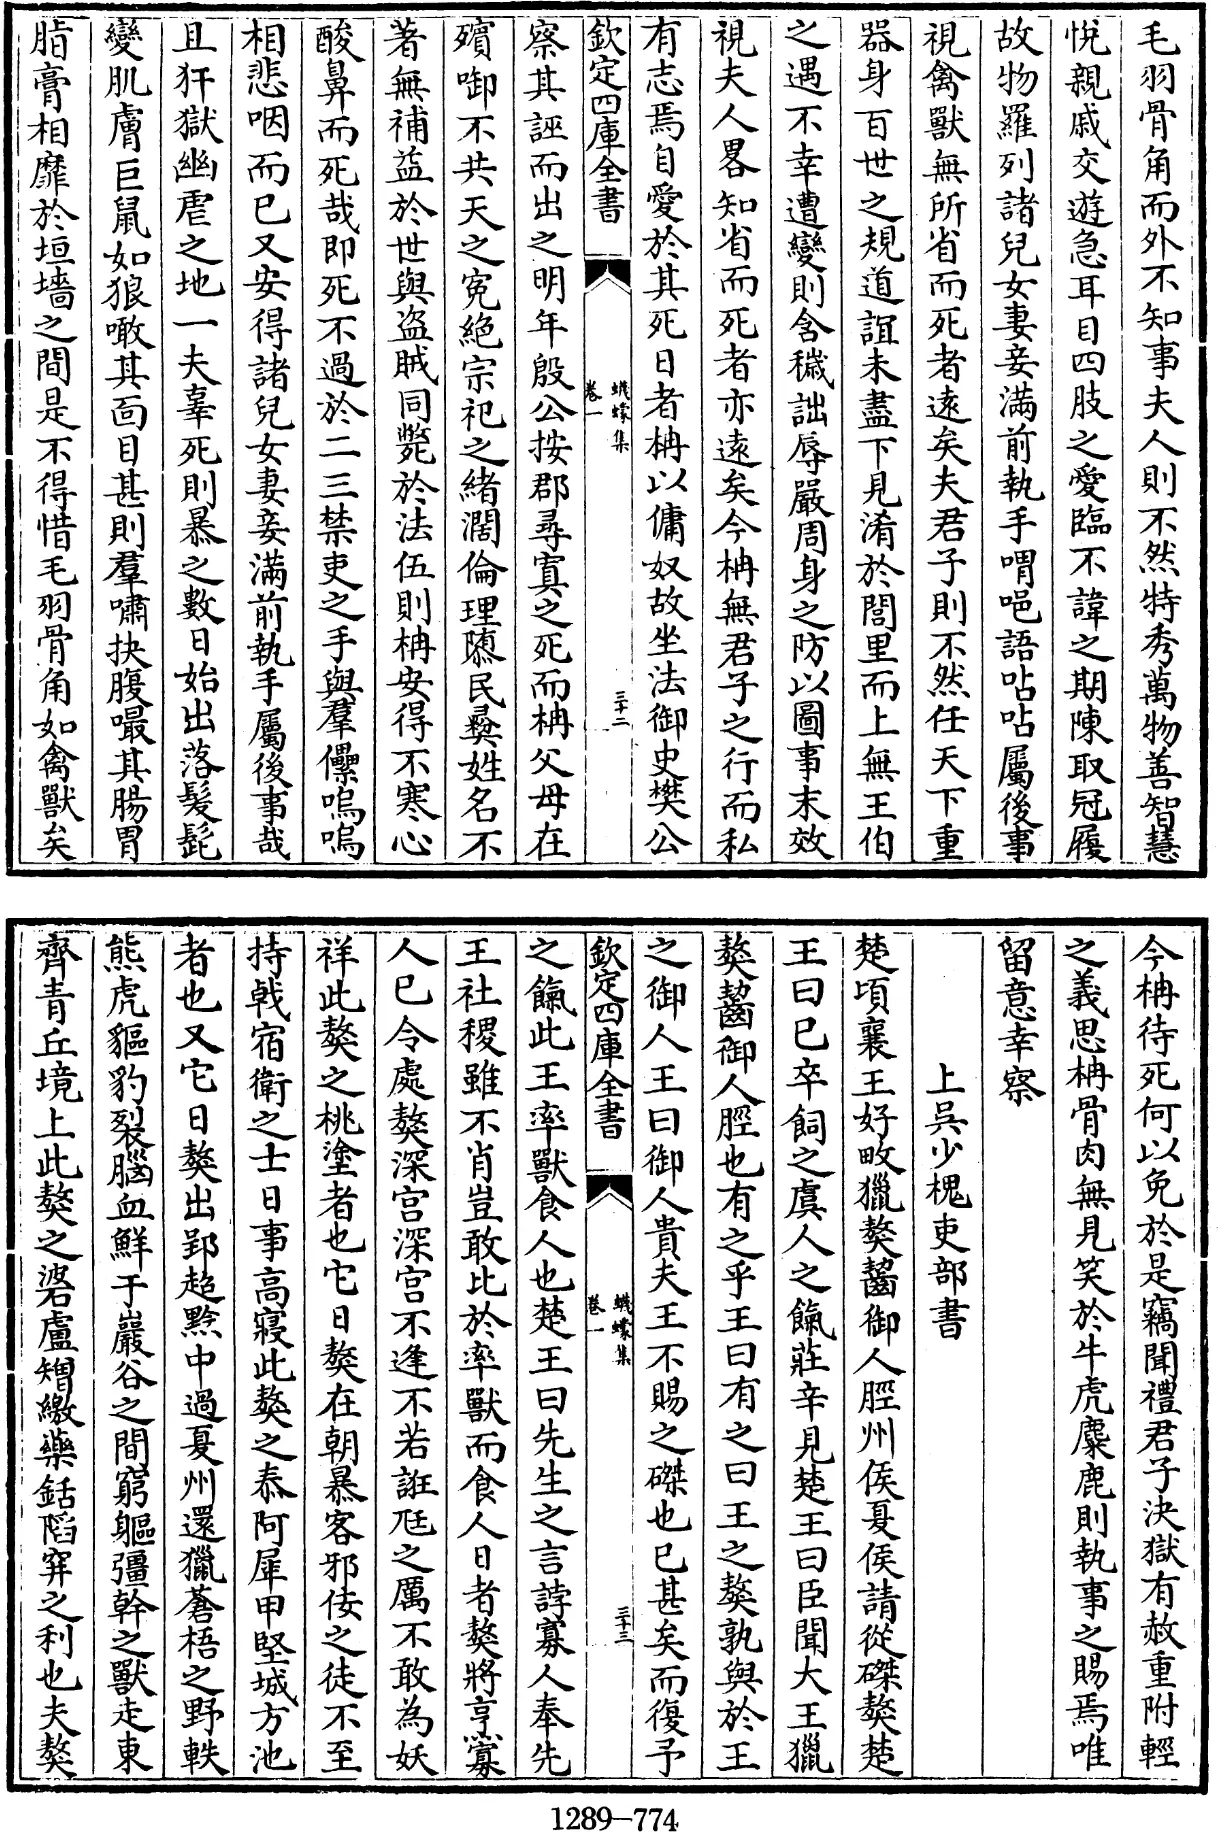 毛羽骨角而外不知事夫人則不然特秀萬物善智慧
悅親戚交遊急耳目四肢之愛臨不諱之期陳取冠履
故物羅列諸兒女妻妾滿前執手喟唈語呫呫屬後事
視禽獸無所省而死者逺矣夫君子則不然任天下重
器身百世之規道誼未盡下見淆於閭里而上無王伯
之遇不幸遭變則含穢詘辱嚴周身之防以圖事末效
視夫人畧知省而死者亦逺矣今柟無君子之行而私
有志焉自愛於其死日者柟以傭奴故坐法御史樊公
欽定四庫全書
蠛蠓集
卷一
三十二
察其誣而出之明年殷公按郡尋寘之死而柟父母在
殯啣不共天之寃絶宗祀之緒濶倫理隳民彞姓名不
著無補益於世與盜賊同斃於法伍則柟安得不寒心
酸鼻而死哉即死不過於二三禁吏之手與羣儽嗚嗚
相悲咽而已又安得諸兒女妻妾滿前執手屬後事哉
且犴獄幽虐之地一夫辜死則暴之數日始出落髮髭
變肌膚巨鼠如狼噉其面目甚則羣嘯抉腹嘬其腸胃
脂膏相靡於垣墻之間是不得惜毛羽骨角如禽獸矣
今柟待死何以免於是竊聞禮君子決獄有赦重附輕
之義思柟骨肉無見笑於牛虎麋鹿則執事之賜焉唯
留意幸察
上吳少槐吏部書
楚頃襄王好畋獵獒齧御人脛州侯夏侯請從磔獒楚
王曰已卒飼之虞人之餼莊辛見楚王曰臣聞大王獵
獒齧御人脛也有之乎王曰有之曰王之獒孰與於王
之御人王曰御人貴夫王不賜之磔也已甚矣而復予
欽定四庫全書
蠛蠓集
卷一
三十三
之餼此王率獸食人也楚王曰先生之言誖寡人奉先
王社稷雖不肖豈敢比於率獸而食人日者獒將亨寡
人已令處獒深宫深宫不逢不若誑尫之厲不敢為妖
祥此獒之桃塗者也它日獒在朝暴客邪佞之徒不至
持戟宿衛之士日事高寢此獒之泰阿犀甲堅城方池
者也又它日獒出郢超黔中過夏州還獵蒼梧之野軼
熊虎貙豹裂腦血鮮于巖谷之間窮軀彊幹之獸走東
齊青丘境上此獒之碆盧矰繳藥銛䧟穽之利也夫獒
1289-774